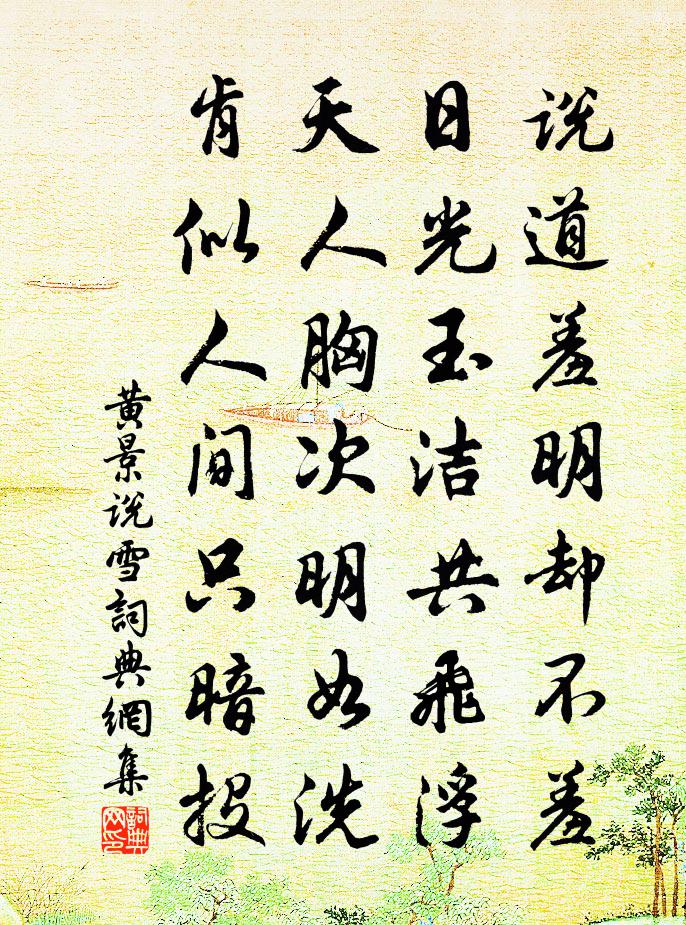 说道羞明却不羞
日光玉洁共飛浮
天人胸次明如洗
肯似人间只暗投
黄景说雪詞典網集
詞典网印